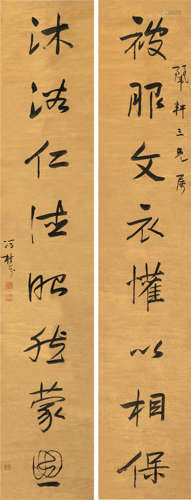 蘭軒三兄屬
被服文衣懽以相保
沐浴仁德昭然蒙恩
馮桂芬